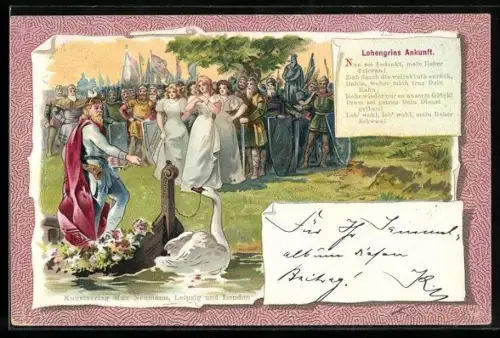 Lohengrins Ankunft.
Nun sei bedankt, mein lieber
Schwan!
Zieh durch die weite Fluth zurück,
Dahin, woher mich trug Dein
Kahn,
Kehr wieder nur zu unserm Glück!
Drum sei getreu Dein Dienst
gethan!
Leb' wohl, leb' wohl, mein lieber
Schwan!
Für Ihr Sammel-
album diesen
Beitrag!
Kunstverlag Max Neumann, Leipzig und London